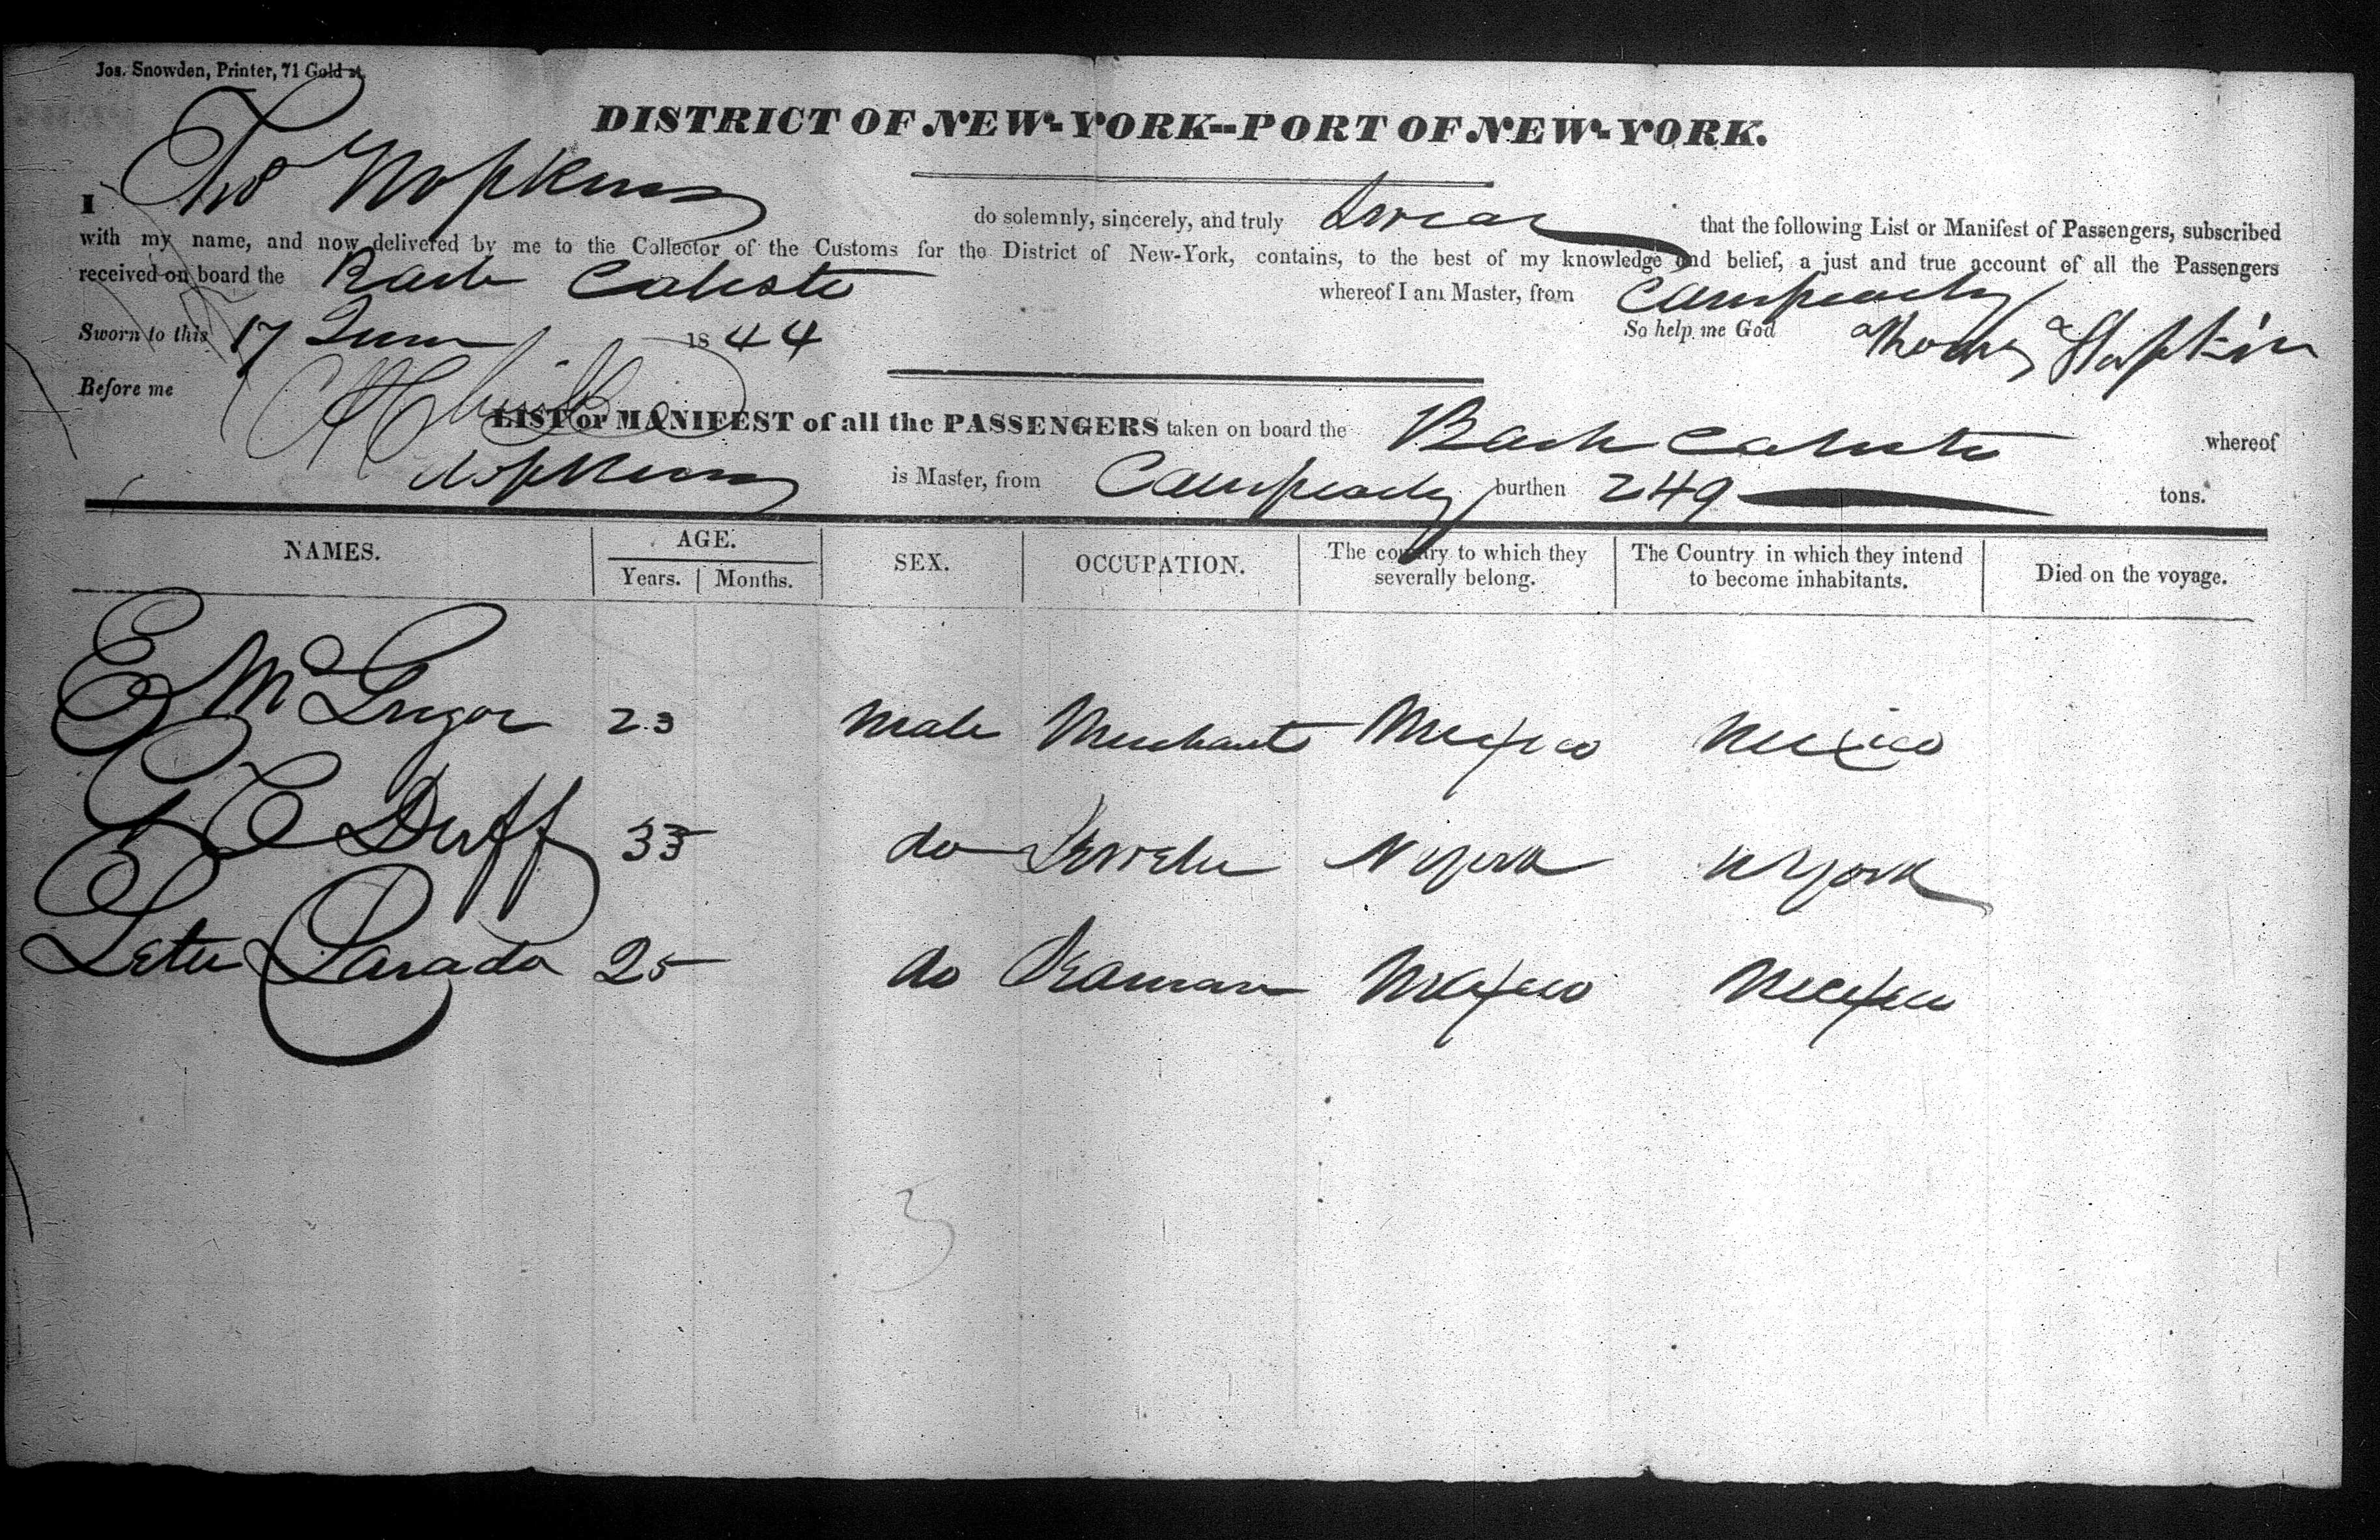 Jos. Snowden, Printer, 71 Gold st.
DISTRICT OF NEW-YORK--PORT OF NEW-YORK.
I Thos Hopkins do solemnly, sincerely, and truly swear that the following List or Manifest of Passengers, subscribed
with my name, and now delivered by me to the Collector of the Customs for the District of New-York, contains, to the best of my knowledge and belief, a just and true account of all the Passengers
received on board the Bark whereof I am Master, from Campeachy
Sworn to this 17 June 1844 So help me God Thomas Hopkins
Before me
LIST or MANIFEST of all the PASSENGERS taken on board the Bark whereof
Hopkins is Master, from Campeachy burthen 249 tons.
NAMES. AGE. SEX. OCCUPATION. The country to which they severally belong. The Country in which they intend to become inhabitants. Died on the voyage.
Years. Months.
E McGregor 23 Male Merchant Mexico Mexico
G C Duff 33 do Jeweler N York N York
Peter Parada 25 do Seaman Mexico Mexico
3